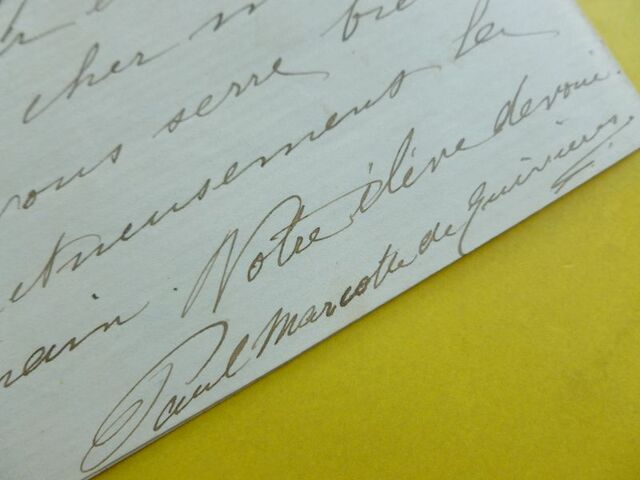 cher m
vous serre bie
ctueusement la
main. Votre élève dévoué.
Paul Marcotte de Quivières